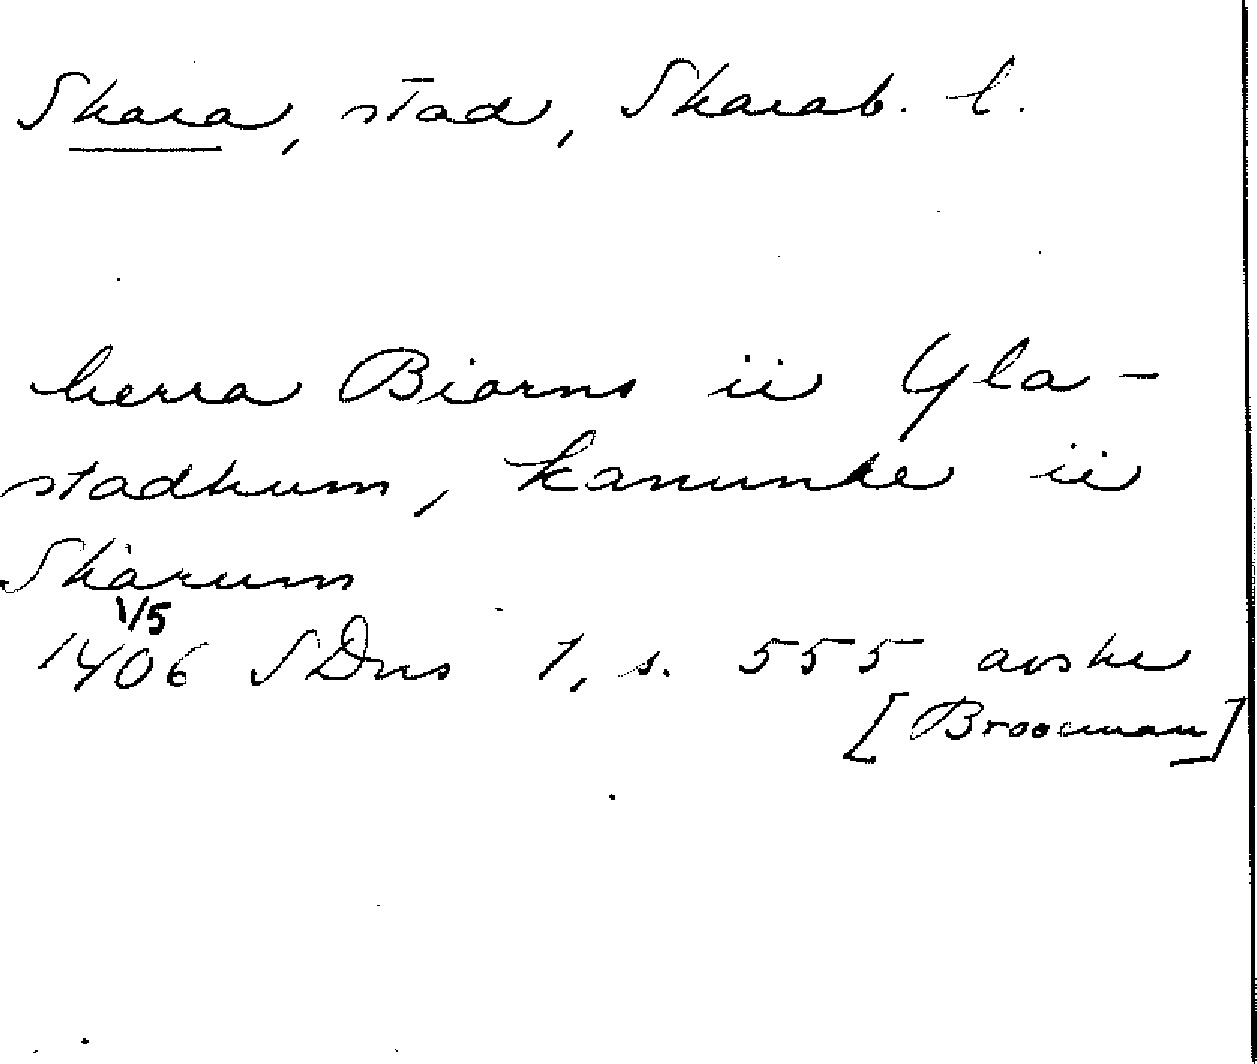 Skara, stad, Skarab. l.
herra Biorns ii Gla-
stadhum, kanunke ii
Skarum
1/5
1406 SDns 1, s. 555 avskr
[Brooeman]